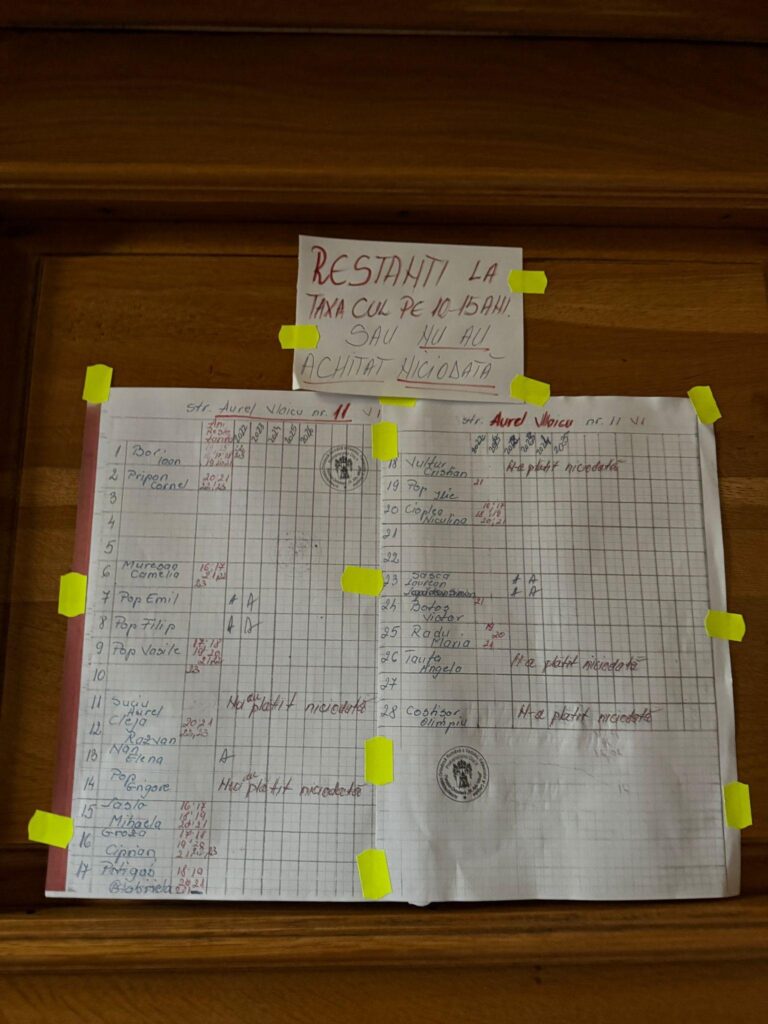 RESTANȚI LA
TAXA CUL PE 10-15 ANI.
SAU NU AU
ACHITAT NICIODATĂ
str. Aurel Vlaicu nr. 11 VI
2022 2023 2024 2025 2026
1 Bori
Ioan
2 Pripon 20 21
Cornel 22, 23
3
4
5
6 Mureșan 16, 17
Camelia 21, 22
23
7 Pop Emil A A
8 Pop Filip A A
9 Pop Vasile 17 18
19 20
21 22
23
10
11 Suciu N-au platit niciodată
Aurel
12 Cleja 20 21
Răzvan 22, 23
13 Nan A
Elena
14 Pop N-au platit niciodată
Grigore
15 Laslo 16 17
Mihaela 18 19
20 21
16 Groza 17 18
19 20
Ciprian 21 22 23
17 18 19
Gabriela 20 21
str. Aurel Vlaicu nr. 11 VI
18 Vultur N-a platit niciodată
Cristian
19 Pop 21
Ilie
20 Cioplea 16, 17
Niculina 18, 19
20, 21
21
22
23 Sasca A A
A A
24 Botoș 21
Victor
25 Radu 19
Maria 20
21
26 Tăuța N-a platit niciodată
Angela
27
28 Coshsor N-a platit niciodată
Olimpiu